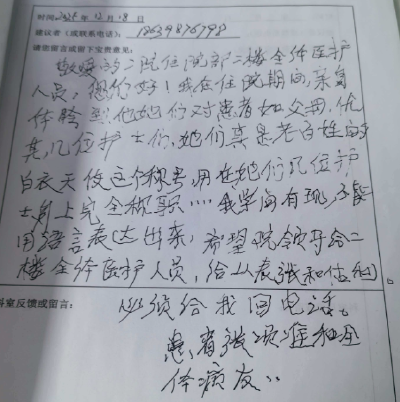 时间: 2024年12月18日
建议者(或联系电话): 13639876798
请您留言或留下宝贵意见:
敬爱的二院住院部二楼全体医护
人员,您们好!我在住院期间,亲身
体验到他她们对患者如父母,优
其,几位护士们,她们真是老百姓的
白衣天使这个称号,用在她们几位护
士身上完全称职……我学问有现,不能
用语言表达出来,希望院领导给二
楼全体医护人员,给以表张和估价。
科室反馈或留言:
必须给我回电话。
患者 和全
体病友..